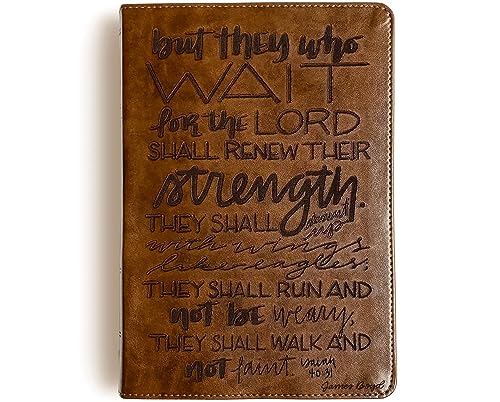 but they who
WAIT
for the LORD
SHALL RENEW THEIR
strength.
THEY SHALL mount up
with wings
like eagles;
THEY SHALL RUN AND
not be weary,
THEY SHALL WALK AND
not faint. Isaiah 40:31
James Boyd